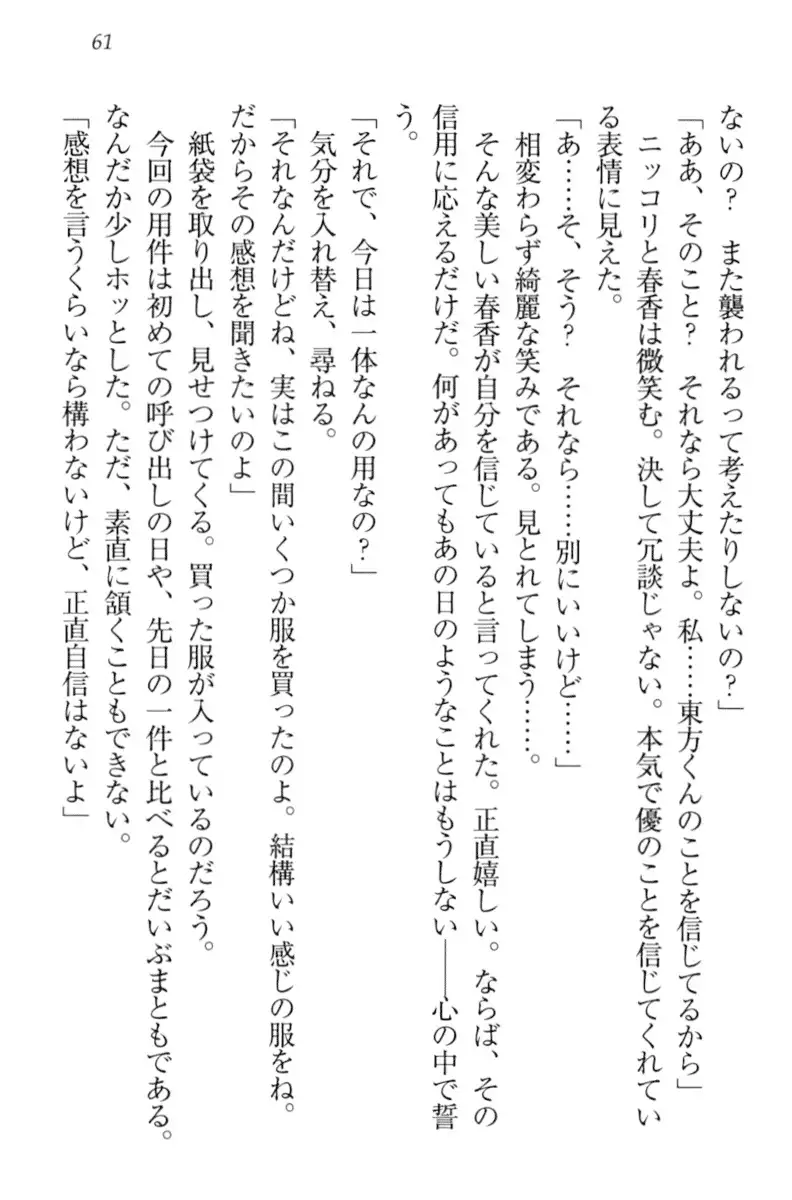 61
ないの？　また襲われるって考えたりしないの？」
「ああ、そのこと？　それなら大丈夫よ。私……東方くんのことを信じてるから」
　ニッコリと春香は微笑む。決して冗談じゃない。本気で優のことを信じてくれてい
る表情に見えた。
「あ……そ、そう？　それなら……別にいいけど……」
　相変わらず綺麗な笑みである。見とれてしまう……。
　そんな美しい春香が自分を信じていると言ってくれた。正直嬉しい。ならば、その
信用に応えるだけだ。何があってもあの日のようなことはもうしない――心の中で誓
う。
「それで、今日は一体なんの用なの？」
　気分を入れ替え、尋ねる。
「それなんだけどね、実はこの間いくつか服を買ったのよ。結構いい感じの服をね。
だからその感想を聞きたいのよ」
　紙袋を取り出し、見せつけてくる。買った服が入っているのだろう。
　今回の用件は初めての呼び出しの日や、先日の一件と比べるとだいぶまともである。
なんだか少しホッとした。ただ、素直に頷くこともできない。
「感想を言うくらいなら構わないけど、正直自信はないよ」